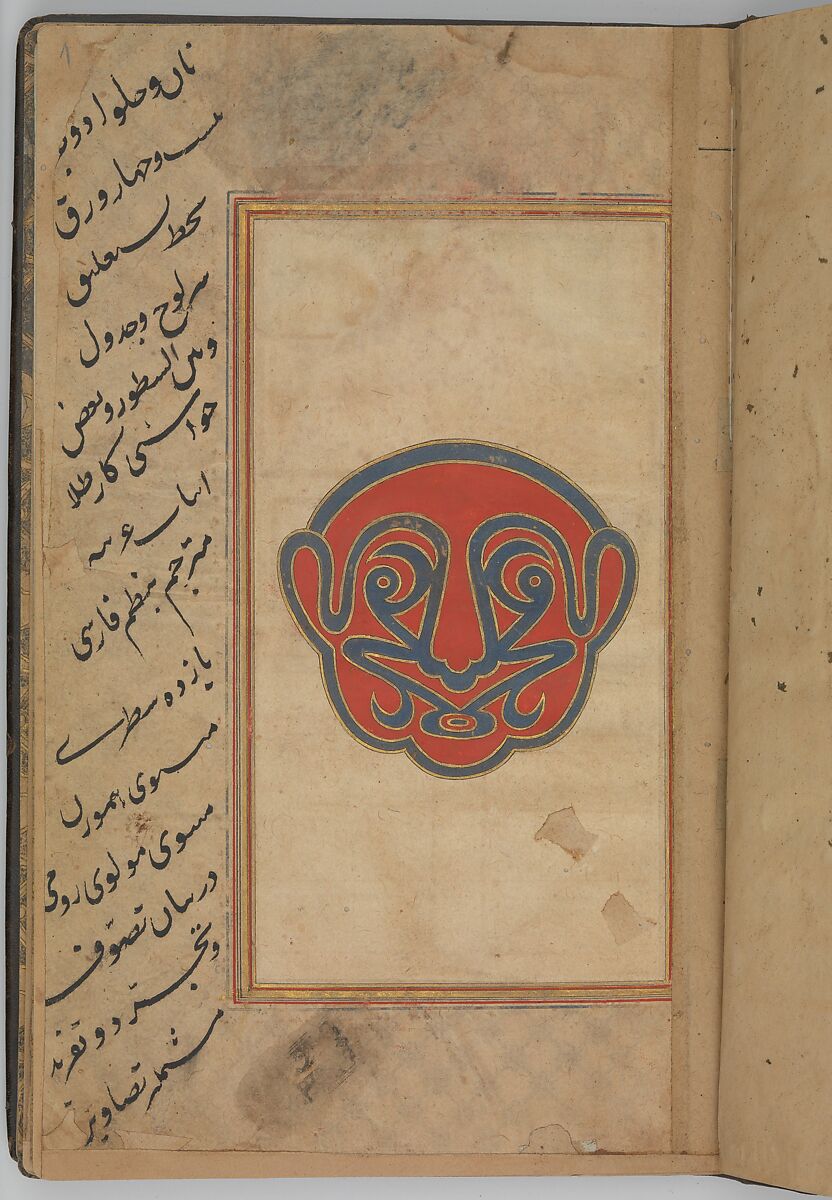 نان و حلوا دو بیست
و چهار ورق
بخط نستعلیق
سرلوح وجدول
وبین السطور وبعض
حواشی کار طلا
ابیات عربیه
مترجم بنظم فارسی
یازده سطری
مثنوی بهموزن
مثنوی مولوی رومی
در بیان تصوّف
وتجرّد و تفرید
مشمله تصاویر